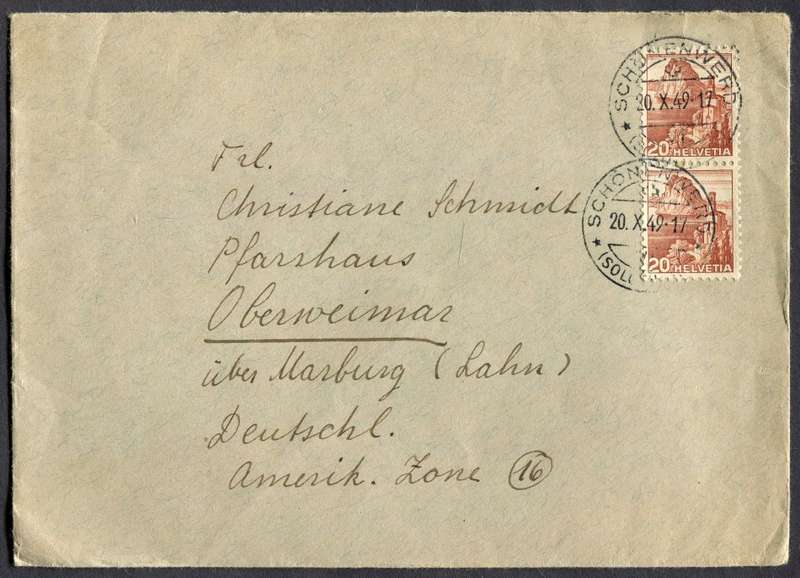 SCHÖNENWERD
20.X.49-17
20 HELVETIA
SCHÖNENWERD
20.X.49-17
(SOLO
20 HELVETIA
Frl.
Christiane Schmidt
Pfarrhaus
Oberweimar
über Marburg (Lahn)
Deutschl.
Amerik. Zone 16